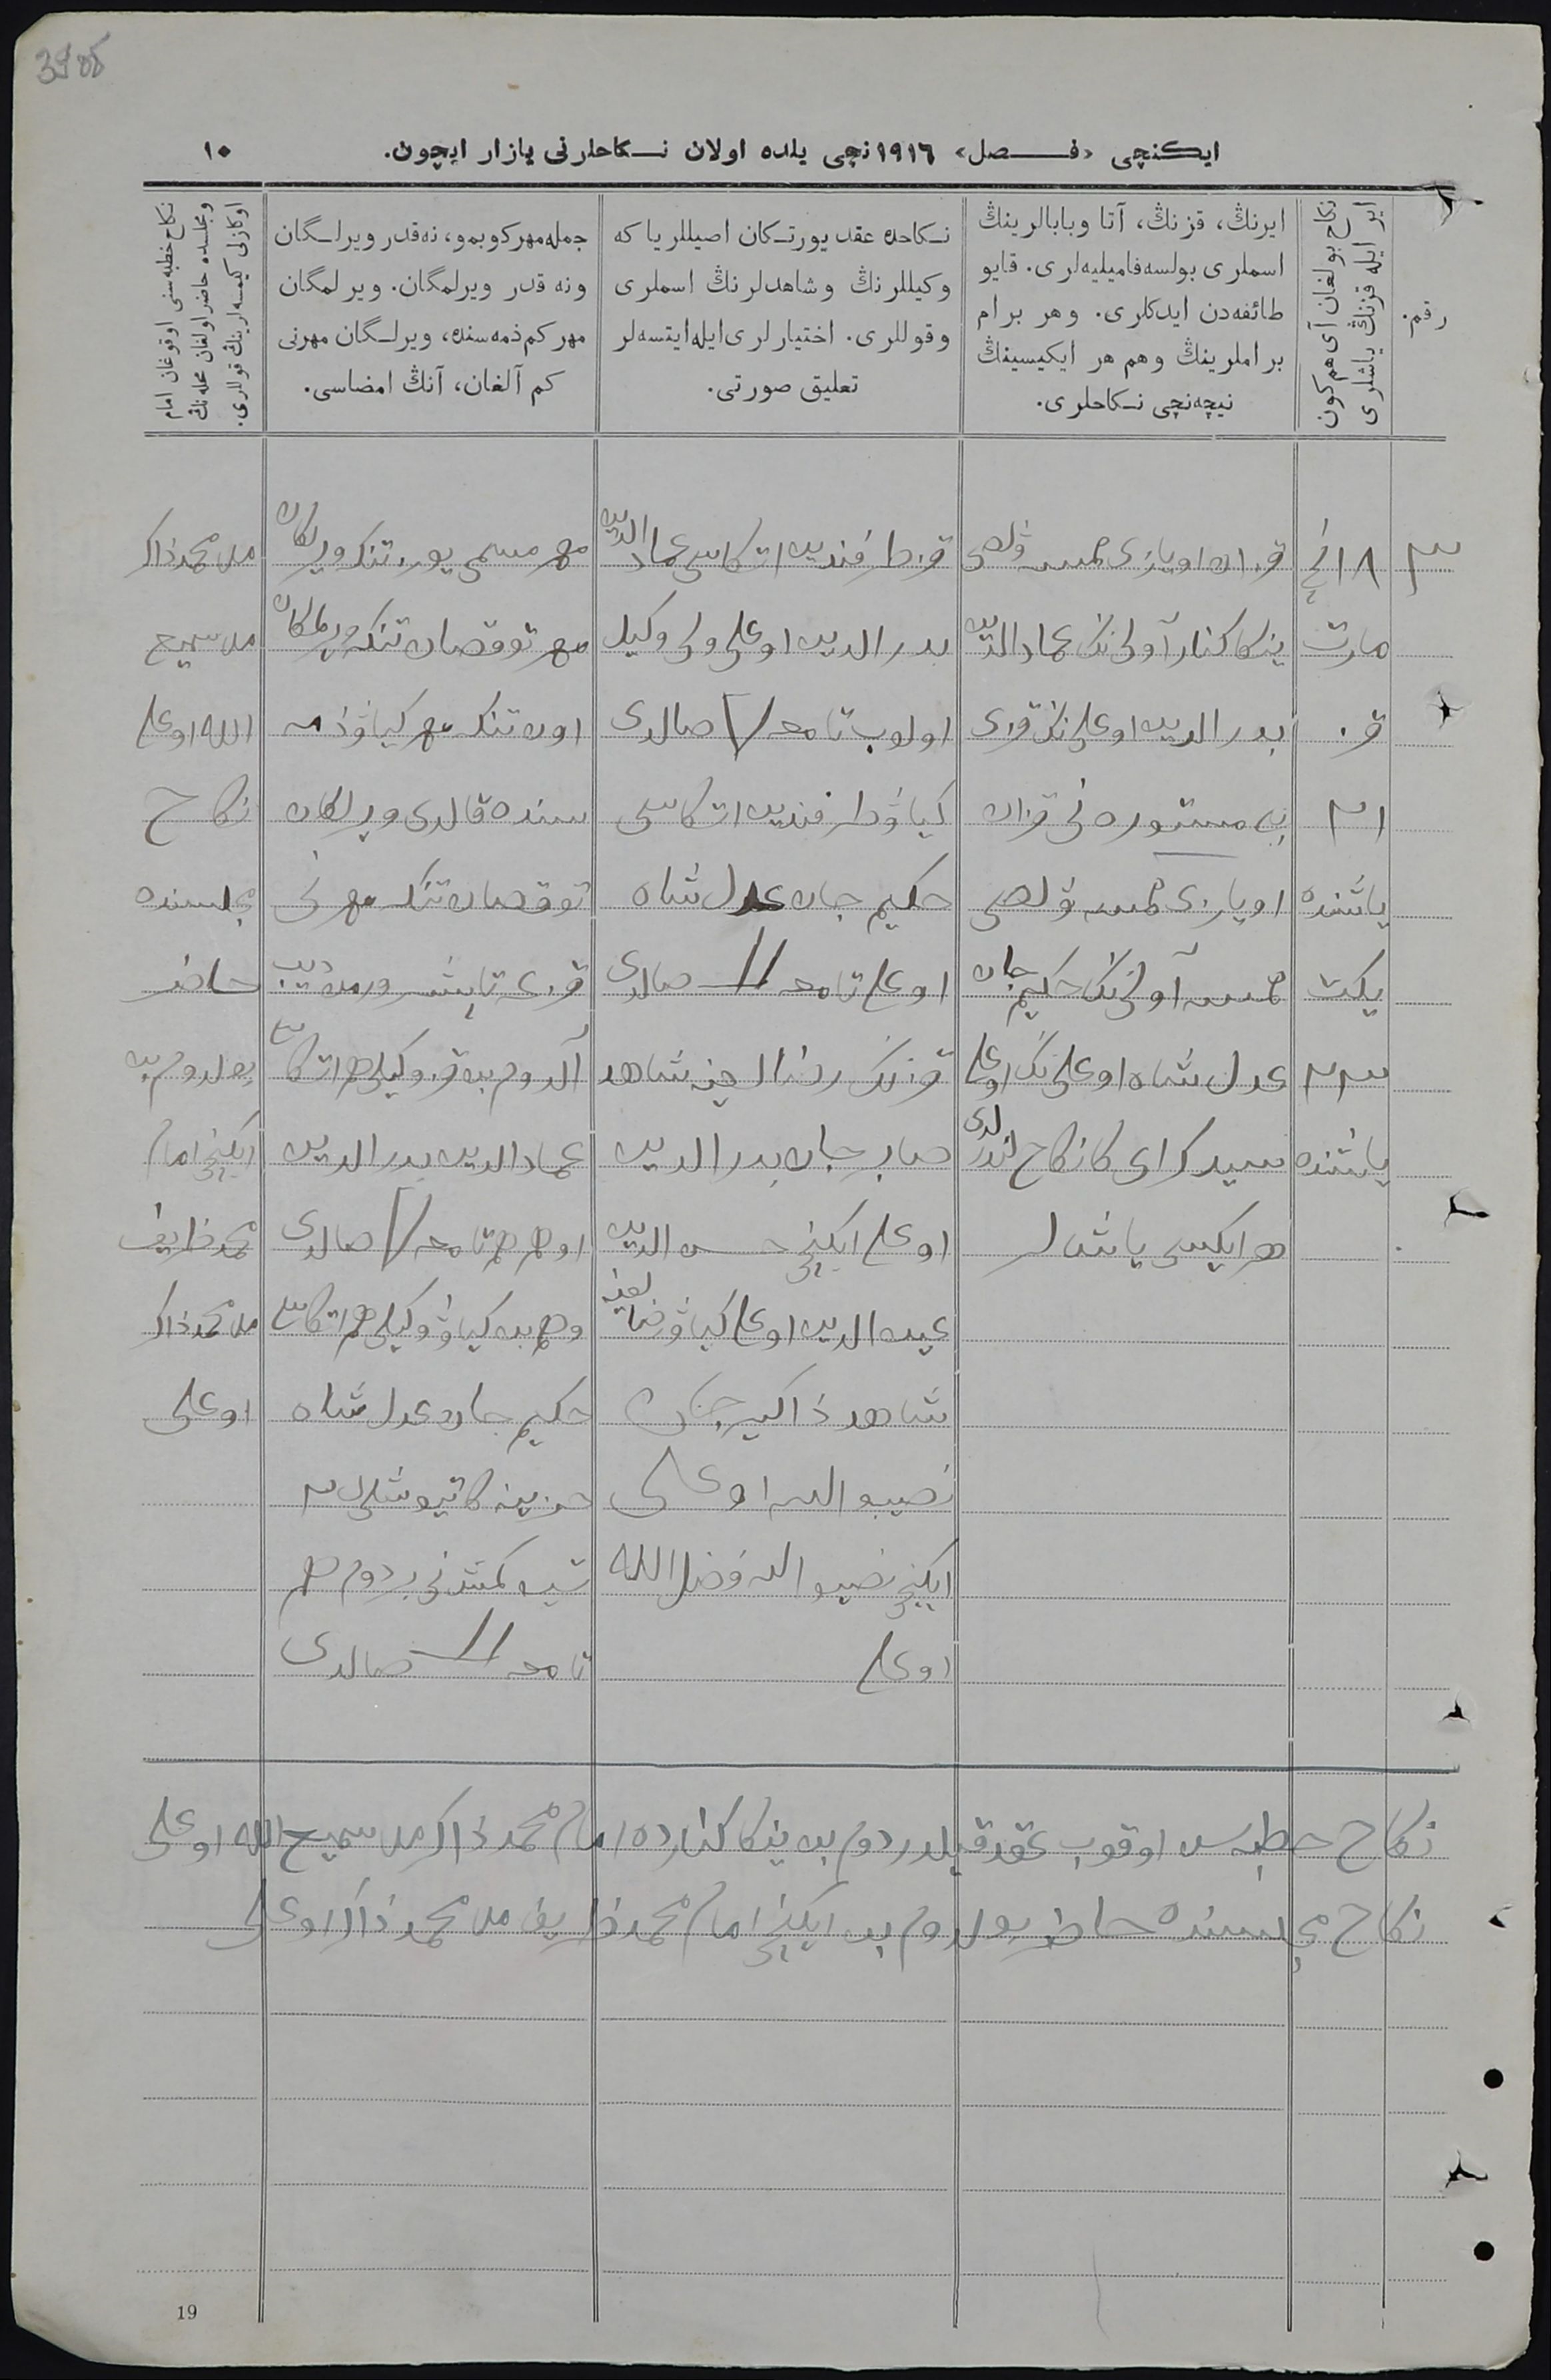 ایكنچی «فصل» ۱۹۱٦ نچی یلده اولان نكاحلرنی یازار ایچون.
۱۰
رقم.
نكاح بولغان آی هم كون
ایر ایله قزنڭ یاشلری
ایرنڭ، قزنڭ، آتا وبابالرینڭ
اسملری بولسه فامیلیه‌لری. قایو
طائفه‌دن ایدكلری. وهر برام
براملرینڭ وهم هر ایكیسینڭ
نیچه‌نچی نكاحلری.
نكاحده عقد یورتكان اصیللر یا كه
وكیللرنڭ وشاهدلرنڭ اسملری
وقوللری. اختیارلری ایله ایتسه‌لر
تعلیق صورتی.
جمله مهر كوبمو، نه‌قدر ویرلگان
ونه قدر ویرلمگان. ویرلمگان
مهر كم ذمه‌سنده، ویرلگان مهرنی
كم آلغان، آنڭ امضاسی.
نكاح خطبه‌سنی اوقوغان امام
ومجلسده حاضر اولغان محله‌نڭ
اوكازلی كیمسه‌لرینڭ قوللری.
۳
۱۸ نچی
مارت
قز
۲۱
یاشنده
یكت
۲۳
یاشنده
قزان اویازی
ینكا كنار آولی نڭ عمادالدین
بدرالدین اوغلی نڭ قزی
بی مستوره نی قزان
اویازی
آولی نڭ حكیم جان
عدل شاه اوغلی نڭ اوغلی
سید كرای كا نكاح لندردی
هر ایكیسی یاشلر
قز طرفندین اتكاسی عمادالدین
بدرالدین اوغلی ولی وكیل
اولوب تامغه صالدی
كیاو طرفندین اتكاسی
حكیم جان عدل شاه
اوغلی تامغه صالدی
قزنڭ رضالغینه شاهد
صابر جان بدرالدین
اوغلی ایكنچی حسن الدین
اوغلی كیاو رضالغینه
شاهد ذاكیر جان
نصیبو الله اوغلی
ایكنچی نصیبو الله فضل الله
اوغلی
مهر مسمی یوز تنكه ویرلكان
مهر توقصان تنكه ویرلماكان
اون تنكه مهر كیاو ذمه
سنده قالدی ویرلكان
توقصان تنكه مهرنی
قزغه تابشرورمن دیب
آلدوم بن قز وكیلی هم اتكاسی
عمادالدین بدرالدین
اوغلی هم تامغه صالدی
وهم بن كیاو وكیلی هم اتكاسی
حكیم جان عدل شاه
بردوم هم
تامغه صالدی
ملا محمد ذاكر
ملا سمیع
الله اوغلی
نكاح
مجلسنده
حاضر
بولدوم بن
ایكنچی امام
محمد ظریف
ملا محمد ذاكر
اوغلی
نكاح خطبه‌سن اوقوب عقد قیلدردوم بن ینكا كنارده امام محمد ذاكر ملا سمیع الله اوغلی
نكاح مجلسنده حاضر بولدوم بن ایكنچی امام محمد ظریف ملا محمد ذاكر اوغلی
19